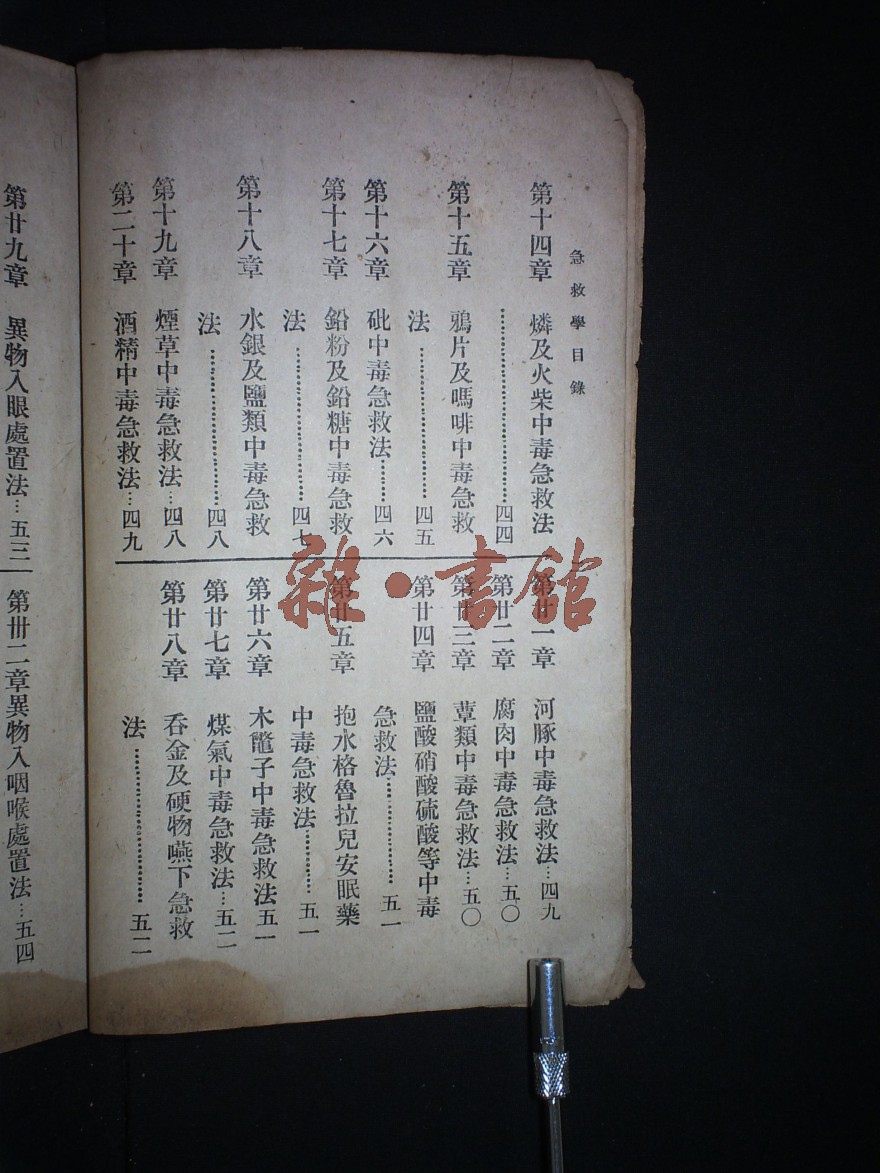 急救學目錄
第十四章　燐及火柴中毒急救法
……………………四四
第十五章　鴉片及嗎啡中毒急救
法………………四五
第十六章　砒中毒急救法………四六
第十七章　鉛粉及鉛糖中毒急救
法………………四七
第十八章　水銀及鹽類中毒急救
法………………四八
第十九章　煙草中毒急救法…四八
第二十章　酒精中毒急救法…四九
第廿一章　河豚中毒急救法…四九
第廿二章　腐肉中毒急救法…五〇
第廿三章　蕈類中毒急救法…五〇
第廿四章　鹽酸硝酸硫酸等中毒
急救法……………五一
第廿五章　抱水格魯拉兒安眠藥
中毒急救法………五一
第廿六章　木鼈子中毒急救法五一
第廿七章　煤氣中毒急救法…五二
第廿八章　吞金及硬物嚥下急救
法………………五二
第廿九章　異物入眼處置法…五三
第卅二章異物入咽喉處置法…五四
雜·書館